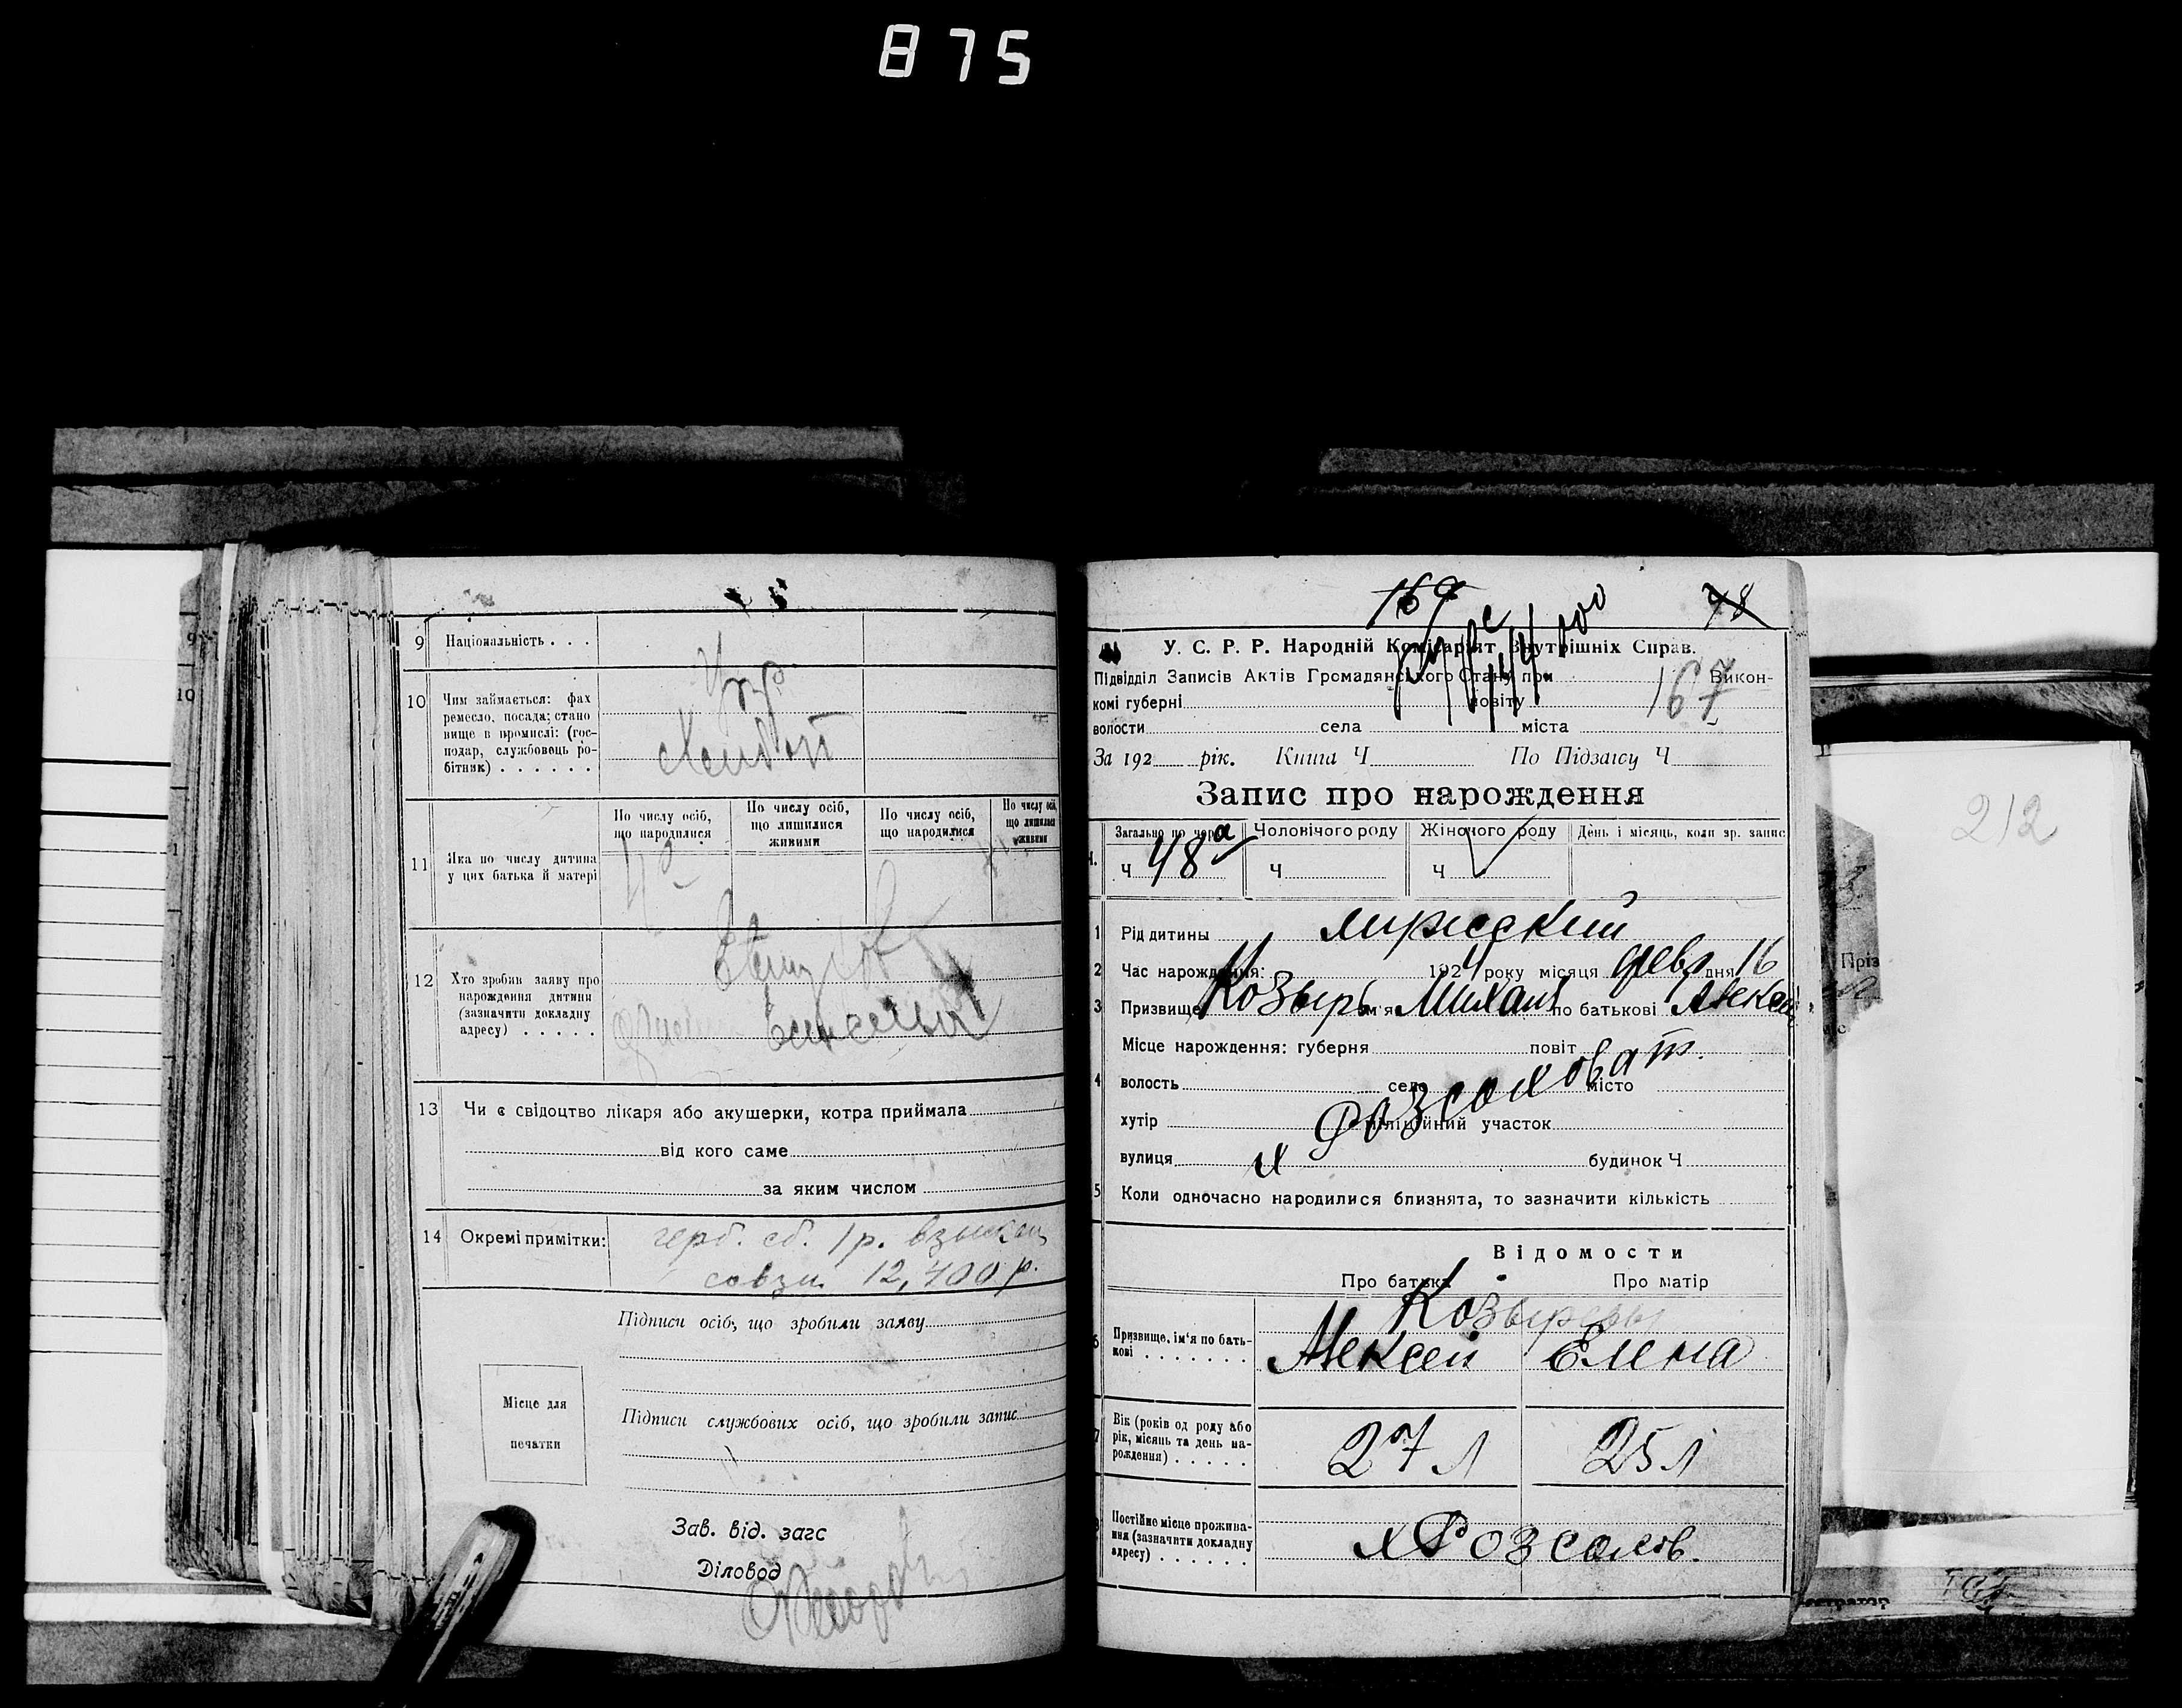 875
9 Національність . . .
Укр
10 Чим займається: фах
ремесло, посада; стано
вище в промислі: (гос-
подар, службовець ро-
бітник) . . . . . .
11 Яка по числу дитина
у цих батька й матері
По числу осіб, що народилися
По числу осіб, що лишилися живими
По числу осіб, що народилися
По числу осіб, що лишилися живими
12 Хто зробив заяву про
нарождення дитини
(зазначити докладну
адресу) . . . . .
13 Чи є свідоцтво лікаря або акушерки, котра приймала
від кого саме
за яким числом
14 Окремі примітки: герб. сб. 1 р. взыскан
12,400 р.
Підписи осіб, що зробили заяву
Місце для
печатки
Підписи службових осіб, що зробили запис
Зав. від. загс
Діловод
169
78
У. С. Р. Р. Народній Комісаріят Внутрішніх Справ.
Підвідділ Записів Актів Громадянського Стану при Викон-
комі губерні повіту 167
волости села міста
За 192 рік. Книга Ч По Підзагсу Ч
Запис про нарождення
Загально по черзі Чоловічого роду Жіночого роду День і місяць, коли зр. запис
Ч 48а Ч Ч
1 Рід дитины мужеский
2 Час нарождення: 1924 року місяця февр дня 16
3 Призвище Козырь ім'я Михаил по батькові Алексей
4 Місце нарождення: губерня повіт
волость село місто
хутір міліційний участок
х Розсоховат.
вулиця будинок Ч
5 Коли одночасно народилися близнята, то зазначити кількість
Відомости
Про батька Про матір
Козыревы
6 Призвище, ім'я по бать-
кові . . . . . . .
Алексей Елена
7 Вік (років од роду або
рік, місяць та день на-
рождення) . . . . .
27 л 25 л
8 Постійне місце прожива-
ння (зазначити докладну
адресу) . . . . . .
х Розсохов.
212
Пріз